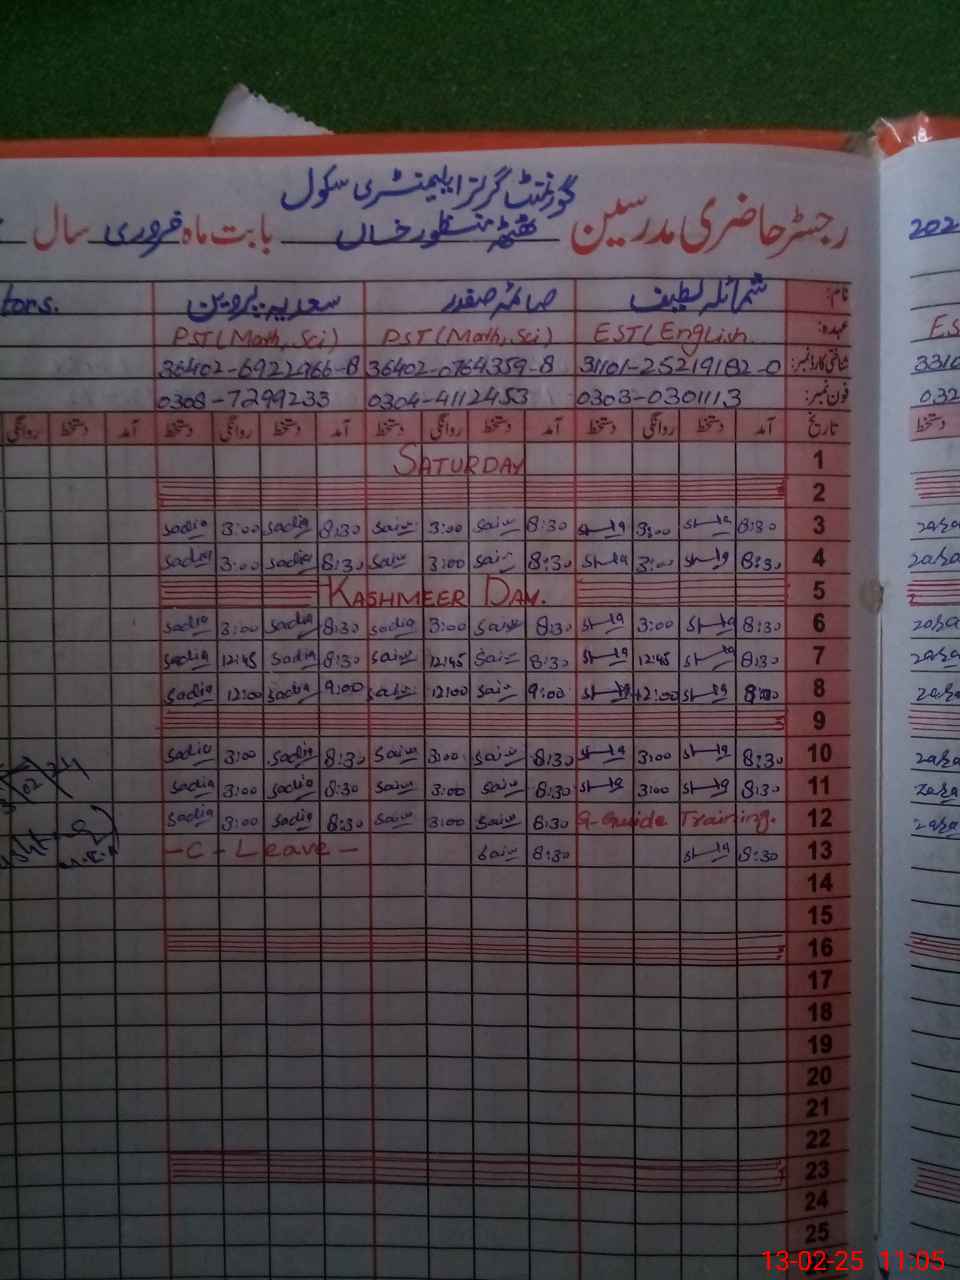 گورنمنٹ گرلز ایلیمنٹری سکول
رجسٹر حاضری مدرسین ٹھٹھہ منظور خاں بابت ماہ فروری سال 202
نام: شمائلہ لطیف صائمہ صفدر سعدیہ پروین tors.
عہدہ: EST(English PST(Math, Sci) PST(Math, Sci) ES
شناختی کارڈ نمبر: 31101-25219182-0 36402-0764359-8 36402-6922966-8 3310
فون نمبر: 0303-0301113 0304-4112453 0308-7299233 032
تاریخ آمد دستخط روانگی دستخط آمد دستخط روانگی دستخط آمد دستخط روانگی دستخط آمد دستخط روانگی دستخط
1 SATURDAY
2
3 8:30 3:00 8:30 3:00 8:30 sadia 3:00 sadia zara
4 8:30 3:00 8:30 3:00 8:30 sadia 3:00 sadia zara
5 KASHMEER DAY.
6 8:30 3:00 8:30 3:00 sadia 8:30 sadia 3:00 sadia zara
7 8:30 12:45 8:30 12:45 8:30 sadia 12:45 sadia zara
8 12:00 9:00 12:00 9:00 sadia 12:00 sadia zara
9
10 8:30 3:00 8:30 3:00 8:30 sadia 3:00 sadia zara
11 8:30 3:00 8:30 3:00 8:30 sadia 3:00 sadia zara
12 G-Guide Training. 8:30 3:00 8:30 sadia 3:00 sadia zara
13 8:30 8:30 - C - Leave -
14
15
16
17
18
19
20
21
22
23
24
25
13-02-25 11:05